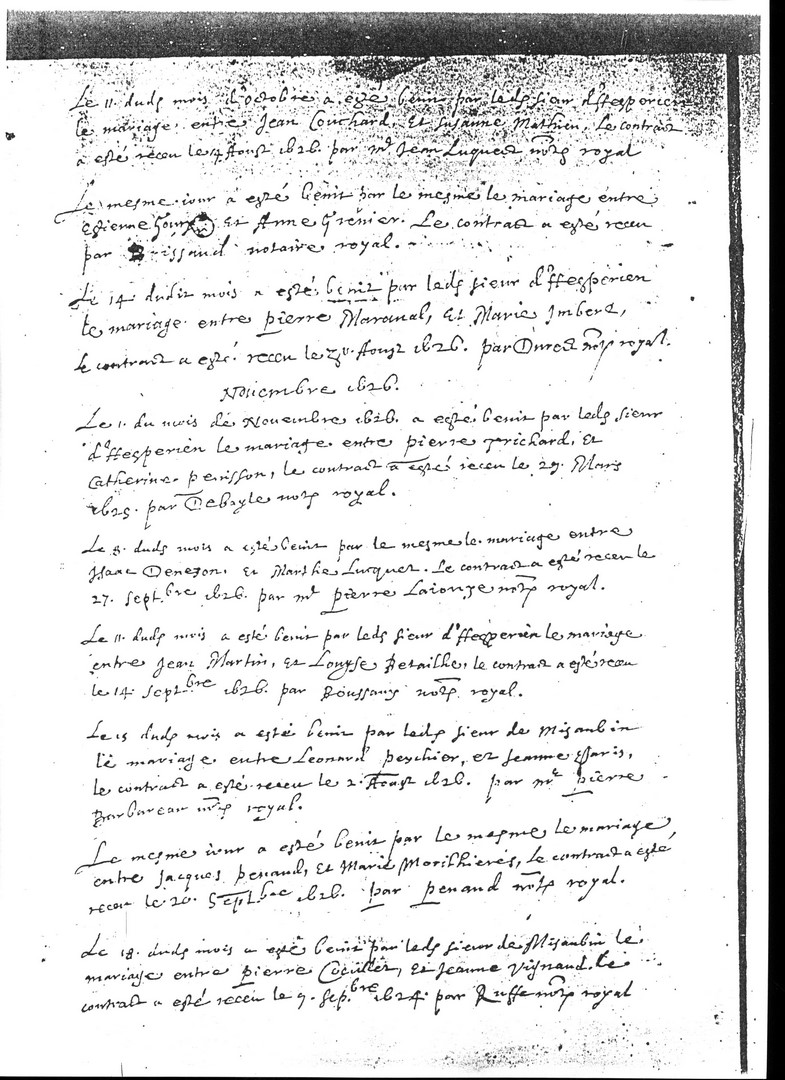 Le 11. dudt mois d'octobre a esté benit par ledt sieur d'hesperien
le mariage entre Jean Couchard, Et Susanne Mathieu, le contract
a esté receu le 7 Aoust 1626. par mr Jean Luquet notre royal
Le mesme iour a esté benit par le mesme le mariage entre
Estienne Et Anne Grenier. Le contract a esté receu
par Brissaud notaire royal.
Le 14. dudit mois a esté benit par ledt sieur d'Hesperien
le mariage entre pierre Maraual, Et Marie Imbert,
le contract a esté receu le Aoust 1626. par Duret notre royal.
Nouembre 1626.
Le 1. du mois de Nouembre 1626. a esté benit par ledt sieur
d'Hesperien le mariage entre pierre Trichard, Et
Catherine perisson, le contract a esté receu le 29. Mars
1625. par Debayle notre royal.
Le 8. dudt mois a esté benit par le mesme le mariage entre
Isaac Denezon, Et Marthe Lucquet. Le contract a esté receu le
27. Septbre 1626. par mr pierre notre royal.
Le 11. dudt mois a esté benit par ledt sieur d'Hesperien le mariage
entre Jean Martin, Et Louyse Betailhe, le contract a esté receu
le 14. Septbre 1626. par notre royal.
Le 15 dudt mois a esté benit par ledt sieur de Misaubin
le mariage entre Leonard perchier, et Jeanne Paris,
le contract a esté receu le 2. Aoust 1626. par mr pierre
Barbareau notre royal.
Le mesme iour a esté benit par le mesme le mariage
entre Jacques penaud, Et Marie Morilhieres, le contract a esté
receu le 20. Septbre 1626. par penaud notre royal.
Le 18. dudt mois a esté benit par ledt sieur de Misaubin le
mariage entre pierre Coeuillet, Et Jeanne Vignaud. le
contract a esté receu le 9. Sepbre 1624. par Ruffe notre royal